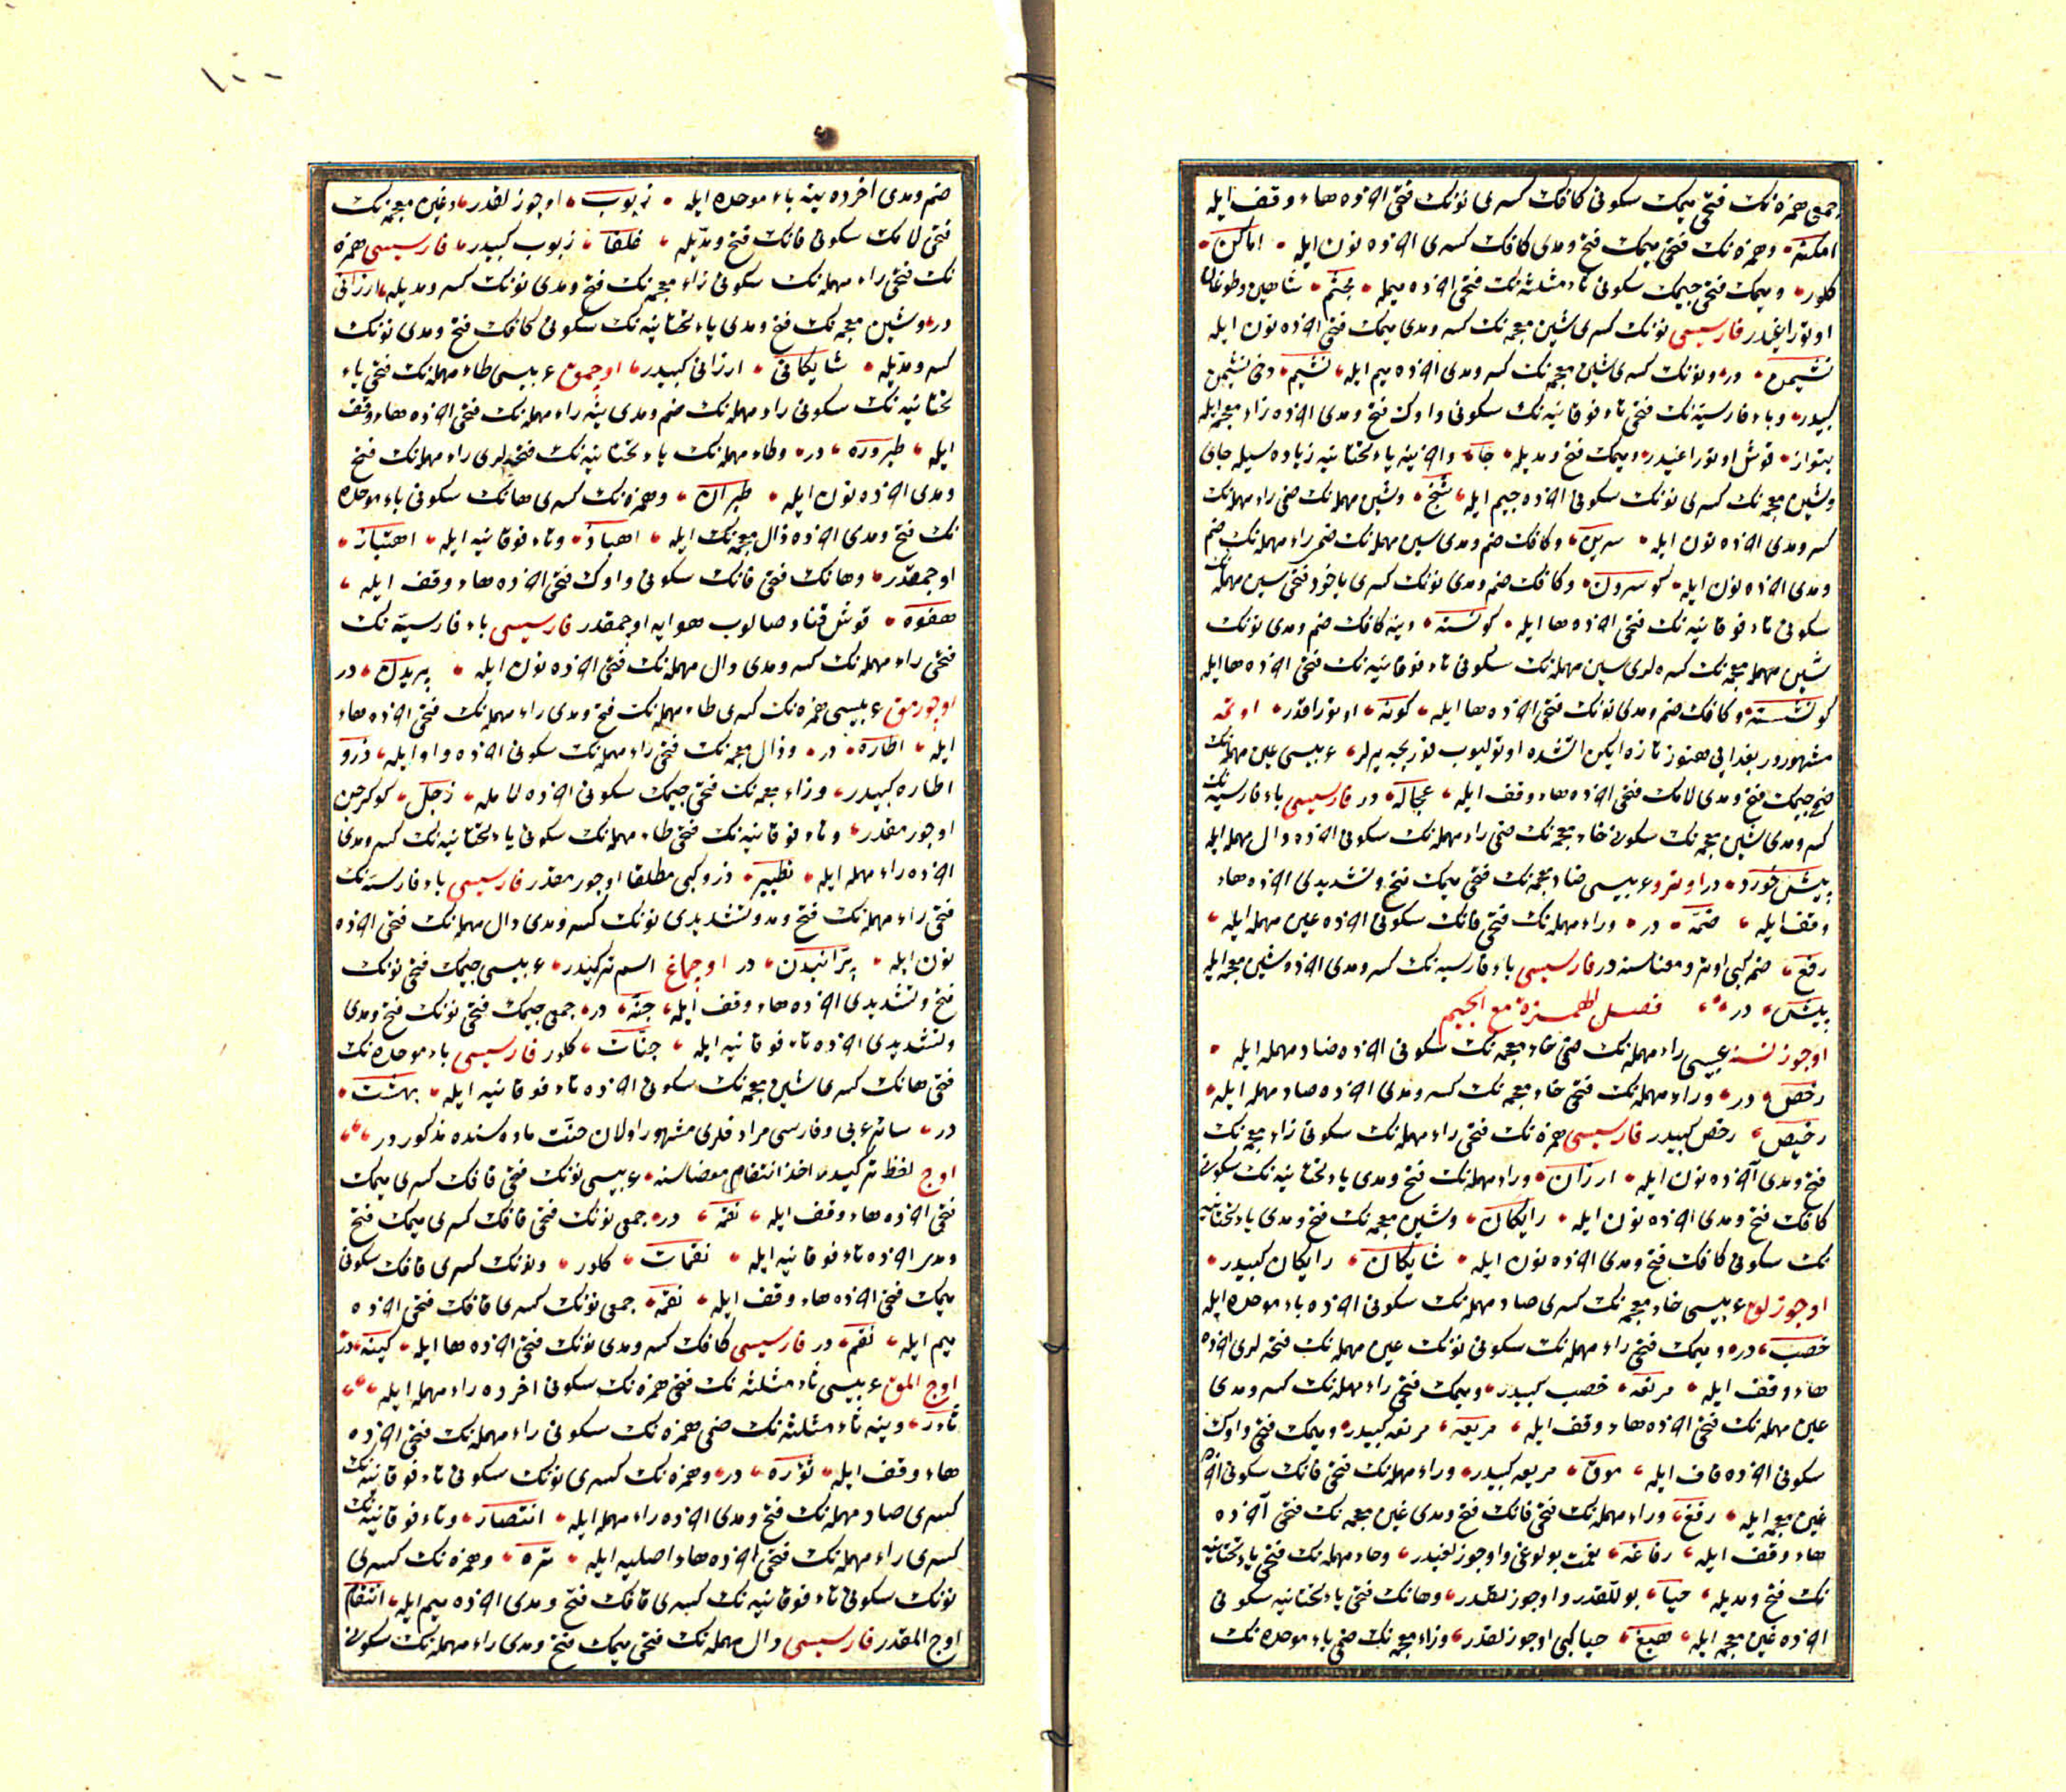 جمعی همزه نك فتحی میمك سكونی كافك كسری نونك فتحی اخرده هاء وقف ایله
امكنه وهمزه نك فتحی میمك فتح ومدی كافك كسری اخرده نون ایله اماكن
كلور ومیمك فتحی جیمك سكونی ثاء مثلثه نك فتحی اخرده میمله مجثم شاهین وطوغان
اوتوراغیدر فارسیسی نونك كسری شین معجمه نك كسر ومدی میمك فتحی اخرده نون ایله
نشیمن در ونونك كسری شین معجمه نك كسر ومدی اخرده میم ایله نشیم دخی نشیمن
كبیدر وباء فارسیه نك فتحی تاء فوقانیه نك سكونی واوك فتح ومدی اخرده زاء معجمه ایله
پتواز قوش اوتوراغیدر ومیمك فتح ومدیله جا واخرینه یاء تحتانیه زیاده سیله جای
وشین معجمه نك كسری نونك سكونی اخرده جیم ایله شنج وشین مهمله نك ضمی راء مهمله نك
كسر ومدی اخرده نون ایله سرین وكافك ضم ومدی سین مهمله نك ضم راء مهمله نك ضم
ومدی اخرده نون ایله كوسرون وكافك ضم ومدی نونك كسری یاخود فتحی سین مهمله نك
سكونی تاء فوقانیه نك فتحی اخرده ها ایله كونسته وینه كافك ضم ومدی نونك
شین مهمله معجمه نك كسره لری سین مهمله نك سكونی تاء فوقانیه نك فتحی اخرده ها ایله
كونشسته وكافك ضم ومدی نونك فتحی اخرده ها ایله كونه اوتوراقدر اوتمه
مشهور در بغدایی هنوز تازه ایكن اتشده اوتولیوب قوریجه یرلر عربیسی عین مهمله نك
ضم جیمك فتح ومدی لامك فتحی اخرده هاء وقف ایله عجاله در فارسیسی باء فارسیه نك
كسر ومدی شین معجمه نك سكون خاء معجمه نك ضمی راء مهمله نك سكونی اخرده دال مهمله ایله
پیشخورد در اوترو عربیسی ضاد معجمه نك فتحی میمك فتح وتشدیدی اخرده هاء
وقف ایله ضمه در وراء مهمله نك فتحی فانك سكونی اخرده عین مهمله ایله
رفع ضم كبی اوترو معناسنه در فارسیسی باء فارسیه نك كسر ومدی اخرده شین معجمه ایله
پیش در فصل الهمزة مع الجیم
اوجوز نسنه عربیسی راء مهمله نك ضمی خاء معجمه نك سكونی اخرده صاد مهمله ایله
رخص در وراء مهمله نك فتحی خاء معجمه نك كسر ومدی اخرده صاد مهمله ایله
رخیص رخص كبیدر فارسیسی همزه نك فتحی راء مهمله نك سكونی زاء معجمه نك
فتح ومدی آخرده نون ایله ارزان وراء مهمله نك فتح ومدی یاء تحتانیه نك سكونی
كافك فتح ومدی اخرده نون ایله رایكان وشین معجمه نك فتح ومدی یاء تحتانیه
نك سكونی كافك فتح ومدی اخرده نون ایله شایكان رایكان كبیدر
اوجوزلق عربیسی خاء معجمه نك كسری صاد مهمله نك سكونی اخرده باء موحده ایله
خصب در ومیمك فتحی راء مهمله نك سكونی نونك عین مهمله نك فتحه لری اخرده
هاء وقف ایله مرنعه خصب كبیدر ومیمك فتحی راء مهمله نك كسر ومدی
عین مهمله نك فتحی اخرده هاء وقف ایله مریعه مرنعه كبیدر ومیمك فتحی واوك
سكونی اخرده قاف ایله موق مریعه كبیدر وراء مهمله نك فتحی فانك سكونی اخرده
غین معجمه ایله رفغ وراء مهمله نك فتحی فانك فتح ومدی غین معجمه نك فتحی آخرده
هاء وقف ایله رفاغه نعمت بوللوغی واوجوزلغیدر وحاء مهمله نك فتحی یاء تحتانیه
نك فتح ومدیله حیا بوللقدر واوجوزلقدر وهانك فتحی یاء تحتانیه سكونی
اخرده غین معجمه ایله هیغ حیا كبی اوجوزلقدر وزاء معجمه نك ضمی باء موحده نك
ضم ومدی اخرده ینه باء موحده ایله زبوب اوجوزلقدر وغین معجمه نك
فتحی لامك سكونی فانك فتح ومدیله غلفا زبوب كبیدر فارسیسی همزه
نك فتحی راء مهمله نك سكونی زاء معجمه نك فتح ومدی نونك كسر ومدیله ارزانی
در وشین معجمه نك فتح ومدی یاء تحتانیه نك سكونی كافك فتح ومدی نونك
كسر ومدیله شایكانی ارزانی كبیدر اوجمق عربیسی طاء مهمله نك فتحی یاء
تحتانیه نك سكونی راء مهمله نك ضم ومدی ینه راء مهمله نك فتحی اخرده هاء وقف
ایله طیروره در وطاء مهمله نك یاء تحتانیه نك فتحه لری راء مهمله نك فتح
ومدی اخرده نون ایله طیران وهمزه نك كسری هانك سكونی باء موحده
نك فتح ومدی اخرده ذال معجمه نك ایله اهباذ وتاء فوقانیه ایله اهتباذ
اوجمقدر وهانك فتحی فانك سكونی واوك فتحی اخرده هاء وقف ایله
هفوه قوش قناد صالوب هوایه اوجمقدر فارسیسی باء فارسیه نك
فتحی راء مهمله نك كسر ومدی دال مهمله نك فتحی اخرده نون ایله پریدن در
اوجورمق عربیسی همزه نك كسری طاء مهمله نك فتح ومدی راء مهمله نك فتحی اخرده هاء
ایله اطاره در وذال معجمه نك فتحی راء مهمله نك سكونی اخرده واو ایله ذرو
اطاره كبیدر وزاء معجمه نك فتحی جیمك سكونی اخرده لامله زجل كوكرجین
اوجورمقدر وتاء فوقانیه نك فتحی طاء مهمله نك سكونی یاء تحتانیه نك كسر ومدی
اخرده راء مهمله ایله تطییر ذرو كبی مطلقا اوجورمقدر فارسیسی باء فارسیه نك
فتحی راء مهمله نك فتح ومد وتشدیدی نونك كسر ومدی دال مهمله نك فتحی اخرده
نون ایله پرانیدن در اوجماغ اسم تركیدر عربیسی جیمك فتحی نونك
فتح وتشدیدی اخرده هاء وقف ایله جنه در جمعی جیمك فتحی نونك فتح ومدی
وتشدیدی اخرده تاء فوقانیه ایله جنات كلور فارسیسی باء موحده نك
فتحی هانك كسری شین معجمه نك سكونی اخرده تاء فوقانیه ایله بهشت
در سائر عربی وفارسی مرادفلری مشهور اولان جنت ماده سنده مذكور در
اوج لفظ تركیدر اخذ انتقام معناسنه عربیسی نونك فتحی قافك كسری میمك
فتحی اخرده هاء وقف ایله نقمه در جمعی نونك فتحی قافك كسری میمك فتح
ومدی اخرده تاء فوقانیه ایله نقمات كلور ونونك كسری قافك سكونی
میمك فتحی اخرده هاء وقف ایله نقمه جمعی نونك كسری قافك فتحی اخرده
میم ایله نقم در فارسیسی كافك كسر ومدی نونك فتحی اخرده ها ایله كینه در
اوج المق عربیسی ثاء مثلثه نك فتحی همزه نك سكونی اخرده راء مهمله ایله
ثأر وینه ثاء مثلثه نك ضمی همزه نك سكونی راء مهمله نك فتحی اخرده
هاء وقف ایله ثؤره در وهمزه نك كسری نونك سكونی تاء فوقانیه نك
كسری صاد مهمله نك فتح ومدی اخرده راء مهمله ایله انتصار وتاء فوقانیه نك
كسری راء مهمله نك فتحی اخرده هاء اصلیه ایله تره وهمزه نك كسری
نونك سكونی تاء فوقانیه نك كسری قافك فتح ومدی اخرده میم ایله انتقام
اوج المقدر فارسیسی دال مهمله نك فتحی میمك فتح ومدی راء مهمله نك سكونی